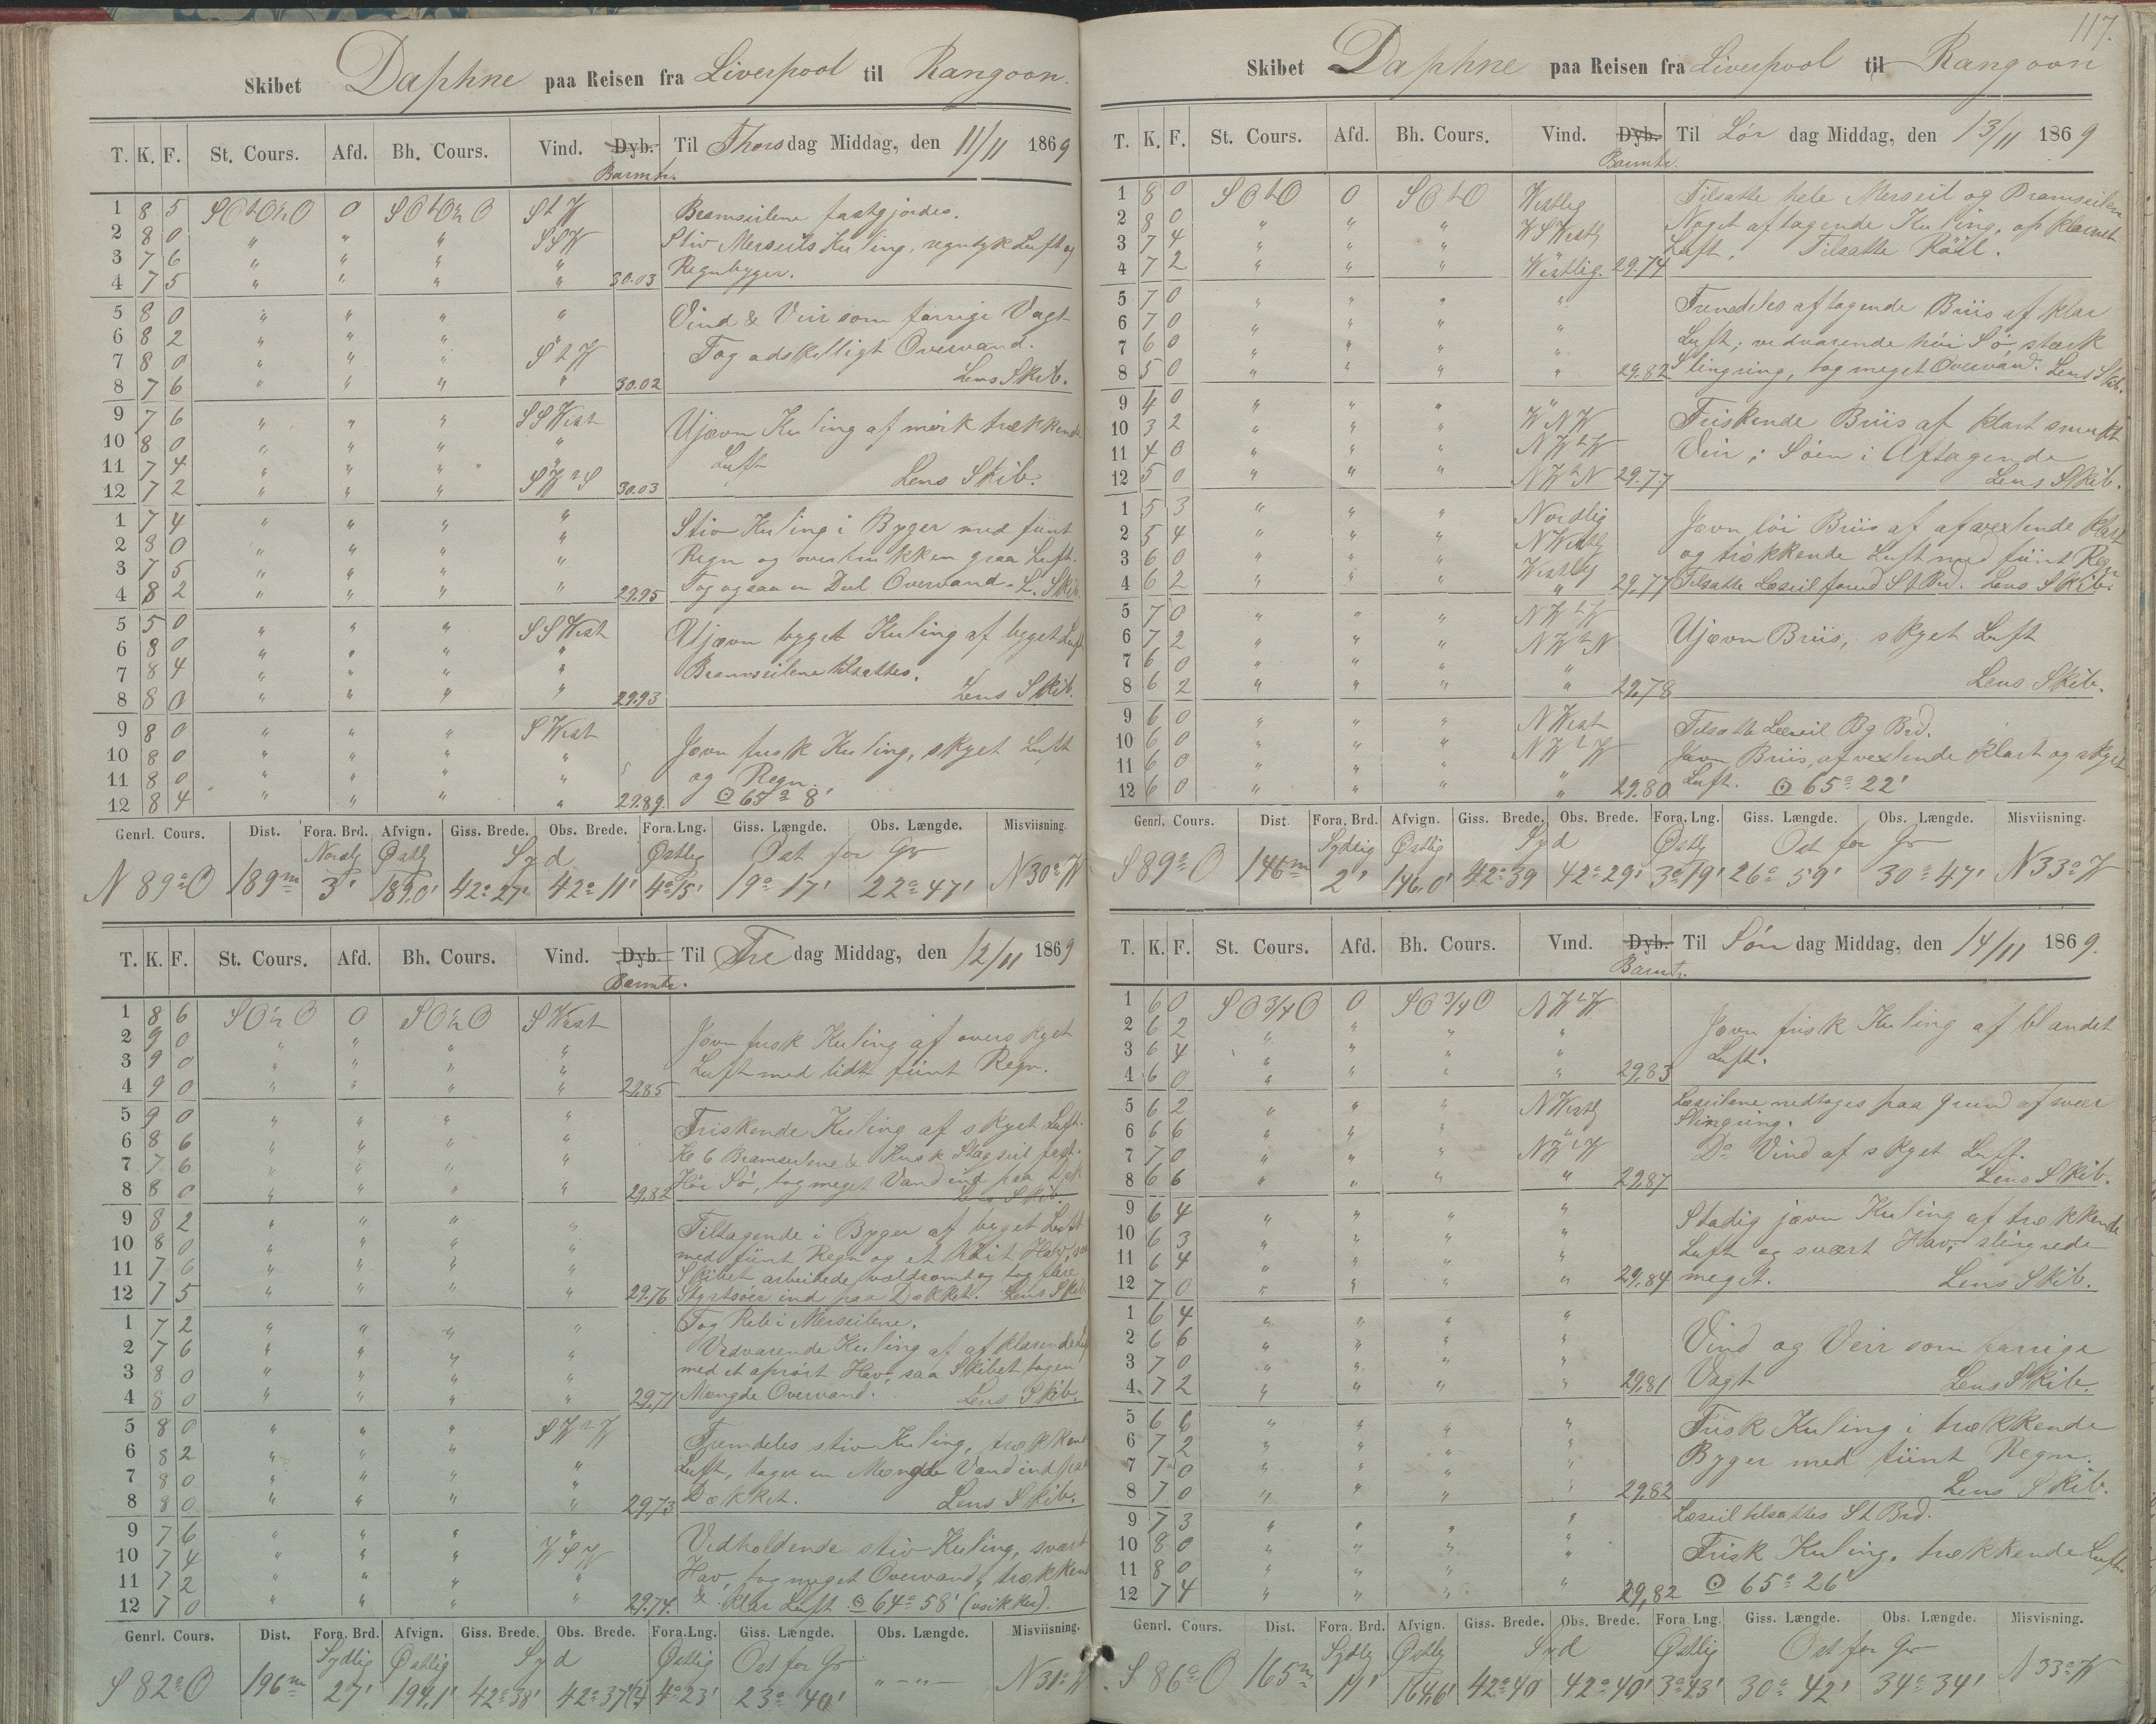 Skibet Daphne paa Reisen fra Liverpool til Rangoon.
T. K. F. St. Cours. Afd. Bh. Cours. Vind. Dyb. Til Thorsdag Middag, den 11/11 1869
Barmtr.
1 8 5 SOtO½O 0 SOtO½O StW Bramseilene fastgjordes.
2 8 0 " " " SSW Stiv Merseils Kuling, regntyk Luft og
3 7 6 " " " " Regnbyger.
4 7 5 " " " " 30.03
5 8 0 " " " " Vind & Veir som forrige Vagt
6 8 2 " " " "
7 8 0 " " " StW Tog adskelligt Overvand.
8 7 6 " " " " 30.02 Lens Skib.
9 7 6 " " " SSWest Ujævn Kuling af mørk trækkende
10 8 0 " " " " Luft
11 7 4 " " " "
12 7 2 " " " SWtS 30.03 Lens Skib.
1 7 4 " " " " Stiv Kuling i Byger med fiint
2 8 0 " " " " Regn og overtrukken graa Luft.
3 7 5 " " " "
4 8 2 " " " " 29.95 Tog ogsaa en Deel Overvand. L. Skib.
5 5 0 " " " SSWest Ujævn byget Kuling af byget Luft
6 8 0 " " " "
7 8 4 " " " " Bramseilene tilsattes.
8 8 0 " " " " 29.93 Lens Skib.
9 8 0 " " " SWest Jevn frisk Kuling, skyet Luft
10 8 0 " " " "
11 8 0 " " " " og Regn.
12 8 4 " " " " 29.89. ⊙ 65° 8'
Genrl. Cours. Dist. Fora. Brd. Afvign. Giss. Brede. Obs. Brede. Fora.Lng. Giss. Længde. Obs. Længde. Misviisning.
Nordlg Østlg Syd Østlig Ost for Gr
N 89° O 189m 3' 189,0' 42° 27' 42° 11' 4° 15' 19° 17' 22° 47' N 30° W
T. K. F. St. Cours. Afd. Bh. Cours. Vind. Dyb. Til Fredag Middag, den 12/11 1869
Barmtr.
1 8 6 SO½O 0 SO½O SWest Jevn frisk Kuling af overskyet
2 9 0 " " " "
3 9 0 " " " " Luft med lidt fiint Regn.
4 9 0 " " " " 29.85
5 9 0 " " " " Friskende Kuling af skyet Luft.
6 8 6 " " " " Kl 6 Bramseilene & Krus Stagseil fast.
7 7 6 " " " "
8 8 0 " " " " 29.82 Høi Sø, tog meget Vand ind paa Dæk
Lens Skib.
9 8 2 " " " " Tiltagende i Byger af byget Luft
10 8 0 " " " " med fiint Regn og et høit Hav, saa
11 7 6 " " " " Skibet arbeidede voldsomt og tog flere
12 7 5 " " " " 29.76 Styrtsøer ind paa Dækket. Lens Skib
1 7 2 " " " " Tog Reb i Merseilene.
2 7 6 " " " " Vedvarende Kuling af afklarende Luft
3 8 0 " " " " med et oprørt Hav, saa Skibet tog en
4 8 0 " " " " 29.71 Mængde Overvand. Lens Skib.
5 8 0 " " " SWtW Fremdeles stiv Kuling, trækkende
6 8 2 " " "
7 8 0 " " " " Luft, tager en Mængde Vand ind paa
8 8 0 " " " " 29.73 Dækket. Lens Skib.
9 7 6 " " " " Vedholdende stiv Kuling, svært
10 7 4 " " " WSW
11 7 2 " " " " Hav, tog meget Overvand, trækkende
12 7 0 " " " " 29.74. & klar Luft ⊙ 64° 58' (usikker).
Genrl. Cours. Dist. Fora. Brd. Afvign. Giss. Brede. Obs. Brede. Fora.Lng. Giss. Længde. Obs. Længde. Misviisning.
Sydlig Østlig Syd Østlig Ost for Gr
S 82° O 196m 27' 194,1' 42° 38' 42° 37' 4° 23' 23° 40' "-"- N 31° W
117.
Skibet Daphne paa Reisen fra Liverpool til Rangoon
T. K. F. St. Cours. Afd. Bh. Cours. Vind. Dyb. Til Lørdag Middag, den 13/11 1869
Barmtr.
1 8 0 SOtO 0 SOtO Westlig Tilsatte hele Merseil og Bramseilene
2 8 0 " " " WSWestlg Noget aftagende Kuling, opklaret
3 7 4 " " " " Luft, Tilsatte Röil.
4 7 2 " " " Westlig. 29.74
5 7 0 " " " " Fremdeles aftagende Briis af klar
6 7 0 " " " "
7 6 0 " " " " Luft; vedvarende høi Sø, stærk
8 5 0 " " " " 29.82 Slingring, tog meget Overvand. Lens Skib.
9 4 0 " " " " Friskende Briis af klart smukt
10 3 2 " " " WNW
11 4 0 " " " NWtW Veir; Søen i Aftagende
12 5 0 " " " NWtN 29.77 Lens Skib.
1 5 3 " " " Nordlig Jevn løi Briis af afvexlende klart
2 5 4 " " " NWestlg
3 6 0 " " " Westlg og trækkende Luft med fiint Regn
4 6 2 " " " " 29.77 Tilsatte Læseil forud St Brd. Lens Skib.
5 7 0 " " " NWtW
6 7 2 " " " NWtN Ujævn Briis, skyet Luft
7 6 0 " " " "
8 6 2 " " " " 29,78 Lens Skib.
9 6 0 " " " NWest Tilsatte Læseil Bg Brd.
10 6 0 " " " NWtW
11 6 0 " " " Jevn Briis, afvexlende klart og skyet
12 6 0 " " " " 29.80 Luft. ⊙ 65° 22'
Genrl. Cours. Dist. Fora. Brd. Afvign. Giss. Brede. Obs. Brede. Fora.Lng. Giss. Længde. Obs. Længde. Misviisning.
Sydlig Østlig Syd Østlg Ost for Gr
S 89° O 146m 2' 146,0' 42° 39 42° 29' 3° 19' 26° 59' 30° 47' N 33° W
T. K. F. St. Cours. Afd. Bh. Cours. Vind. Dyb. Til Søndag Middag, den 14/11 1869.
Barmtr.
1 6 0 SO¾O 0 SO¾O NWtW
2 6 2 " " " " Jevn frisk Kuling af blandet
3 6 4 " " " " Luft.
4 6 0 " " " " 29,83
5 6 2 " " " NWestlg Læseilene nedtoges paa Grund af svær
6 6 6 " " " " Slingring.
7 7 0 " " " NWtW Do Vind af skyet Luft.
8 6 6 " " " " 29,87 Lens Skib.
9 6 4 " " " " Stadig jævn Kuling af trækkende
10 6 3 " " " "
11 6 4 " " " " Luft og svært Hav, slingrede
12 7 0 " " " " 29,84 meget. Lens Skib.
1 6 4 " " " "
2 6 6 " " " " Vind og Veir som forrige
3 7 0 " " " "
4. 7 2 " " " " 29,81 Vagt Lens Skib.
5 6 6 " " " " Frisk Kuling i trækkende
6 7 2 " " " "
7 7 0 " " " " Byger med fiint Regn.
8 7 0 " " " " 29.82 Lens Skib.
9 7 3 " " " " Læseil tilsattes St Brd.
10 8 0 " " " "
11 8 0 " " " Frisk Kuling, trækkende Luft.
12 7 4 " " " " 29,82 ⊙ 65° 26'
Genrl. Cours. Dist. Fora. Brd. Afvign. Giss. Brede. Obs. Brede. Fora Lng. Giss. Længde. Obs. Længde. Misvisning.
Sydlg Østlg Syd Østlig Ost for Gr
S 86° O 165m 11' 164,6' 42° 40 42° 40' 3° 43' 30° 42' 34° 34' N 33° W